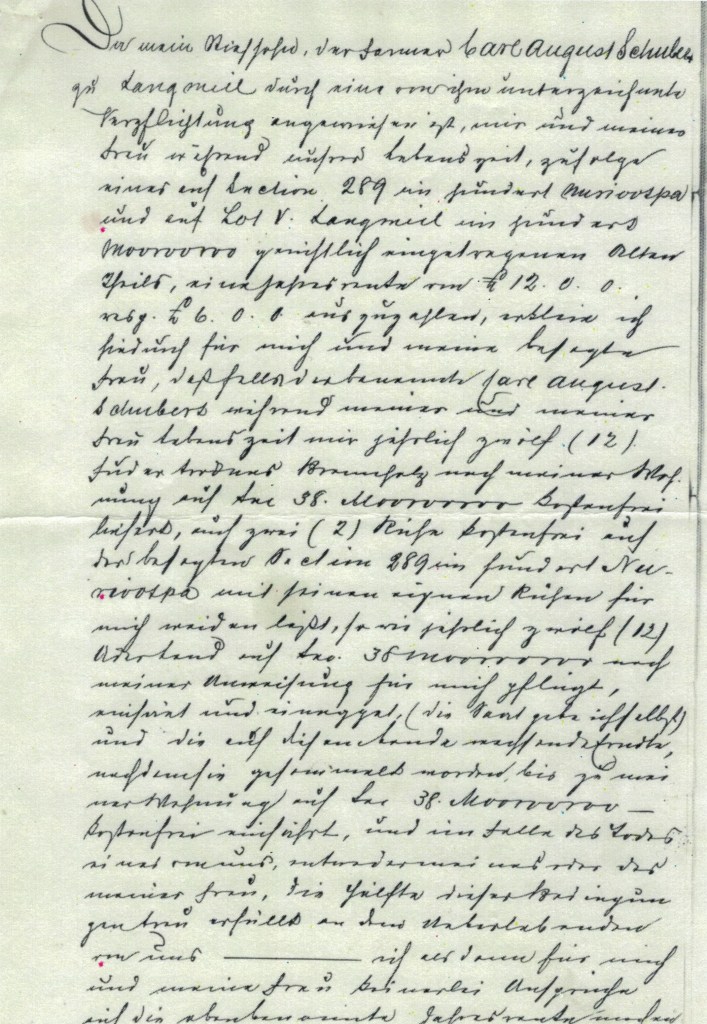 Da mein Stiefsohn, der Farmer Carl August Schubert
zu Langmeil durch eine von ihm unterzeichnete
Verpflichtung angewiesen ist, mir und meiner
Frau während unsrer Lebenszeit, zufolge
eines auf Section 289 im Hundert Nuriootpa
und auf Lot V. Langmeil im Hundert
Moorooroo gerichtlich eingetragenen Alten
Theils, eine Jahresrente von £ 12. 0. 0.
resp. £ 6. 0. 0 auszuzahlen, erkläre ich
hiedurch für mich und meine besagte
Frau, daß falls der benannte Carl August
Schubert während meiner und meiner
Frau Lebenszeit mir jährlich zwölf (12)
Fuder trocknes Brennholz nach meiner Woh-
nung auf Sec 38. Moorooroo kostenfrei
liefert, auch zwei (2) Kühe kostenfrei auf
der besagten Section 289 im Hundert Nu-
riootpa mit seinen eignen Kühen für
mich weiden läßt, so wie jährlich zwölf (12)
Ackerland auf Sec. 38 Moorooroo nach
meiner Anweisung für mich pflügt,
einsäet und einegget, (die Saat gebe ich selbst)
und die auf diesem Lande wachsende Erndte,
nachdem sie gesammelt worden bis zu mei
ner Wohnung auf Sec 38. Moorooroo —
kostenfrei einfährt, und im Falle des Todes
eines von uns, entweder meines oder des
meiner Frau, die Hälfte dieser Bedingun
gen treu erfüllt an dem Ueberlebenden
von uns ——— ich als dann für mich
und meine Frau keinerlei Ansprüche
auf die obenbenannte Jahresrente machen